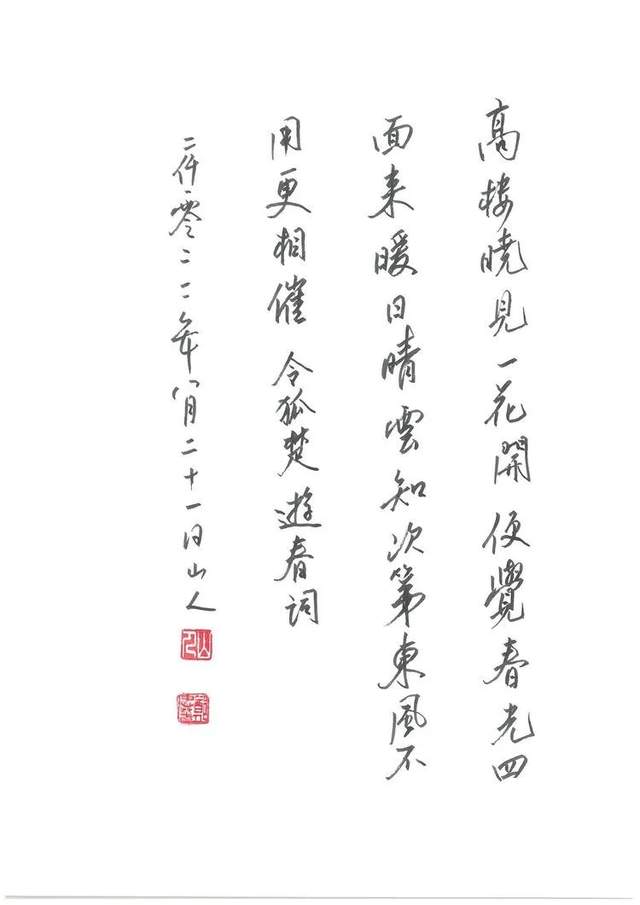 高樓曉見一花開便覺春光四
面来暖日晴雲知次第東風不
用更相催 令狐楚遊春詞
二仟零二二年八月二十一日山人